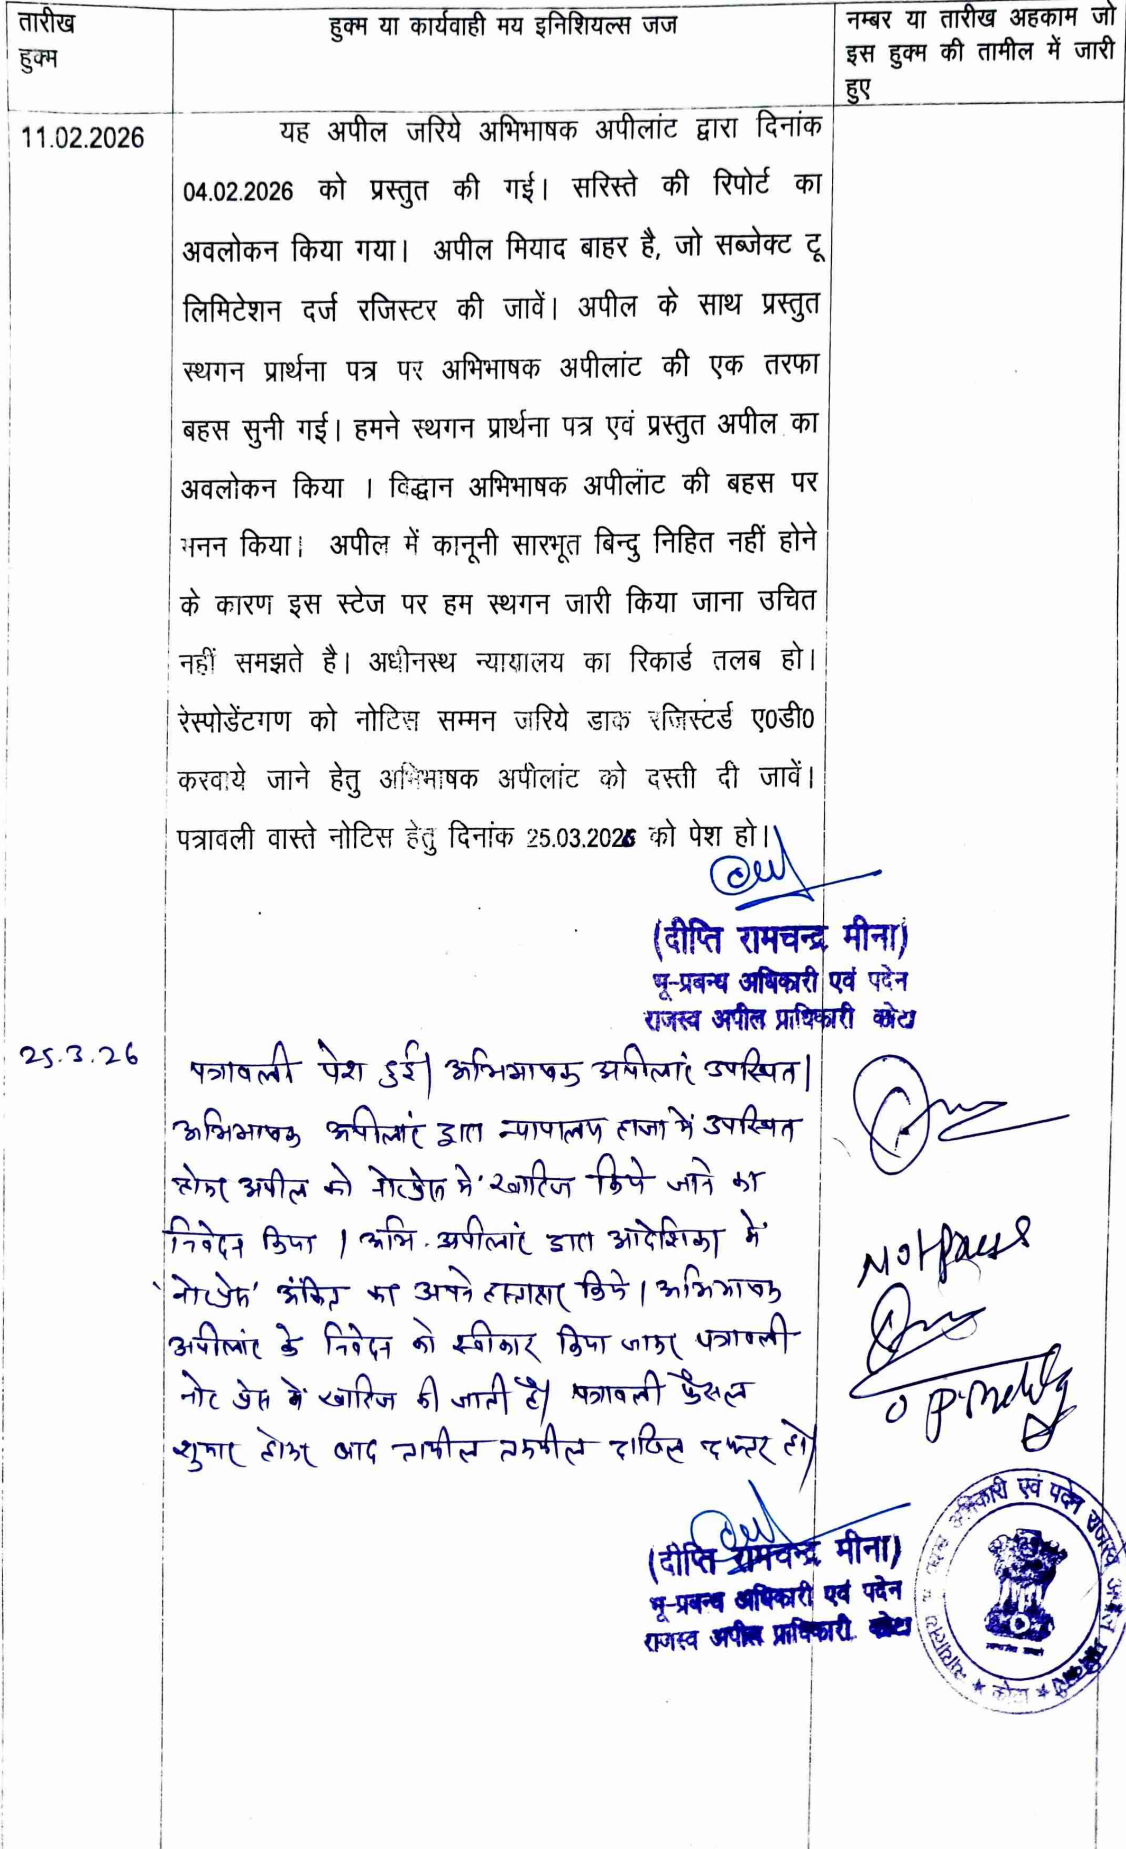 तारीख
हुक्म
हुक्म या कार्यवाही मय इनिशियल्स जज
नम्बर या तारीख अहकाम जो
इस हुक्म की तामील में जारी
हुए
11.02.2026
यह अपील जरिये अभिभाषक अपीलांट द्वारा दिनांक
04.02.2026 को प्रस्तुत की गई। सरिस्ते की रिपोर्ट का
अवलोकन किया गया। अपील मियाद बाहर है, जो सब्जेक्ट टू
लिमिटेशन दर्ज रजिस्टर की जावें। अपील के साथ प्रस्तुत
स्थगन प्रार्थना पत्र पर अभिभाषक अपीलांट की एक तरफा
बहस सुनी गई। हमने स्थगन प्रार्थना पत्र एवं प्रस्तुत अपील का
अवलोकन किया । विद्धान अभिभाषक अपीलांट की बहस पर
मनन किया। अपील में कानूनी सारभूत बिन्दु निहित नहीं होने
के कारण इस स्टेज पर हम स्थगन जारी किया जाना उचित
नहीं समझते है। अधीनस्थ न्यायालय का रिकार्ड तलब हो।
रेस्पोडेंटगण को नोटिस सम्मन जरिये डाक रजिस्टर्ड ए0डी0
करवाये जाने हेतु अभिभाषक अपीलांट को दस्ती दी जावें।
पत्रावली वास्ते नोटिस हेतु दिनांक 25.03.2026 को पेश हो।
(दीप्ति रामचन्द्र मीना)
भू-प्रबन्ध अधिकारी एवं पदेन
राजस्व अपील प्राधिकारी कोटा
25.3.26
पत्रावली पेश हुई। अभिभाषक अपीलांट उपस्थित।
अभिभाषक अपीलांट द्वारा न्यायालय हाजा में उपस्थित
होकर अपील को नोटप्रेस में खारिज किये जाने का
निवेदन किया । अभि. अपीलांट द्वारा आदेशिका में
'नोटप्रेस' अंकित कर अपने हस्ताक्षर किये। अभिभाषक
अपीलांट के निवेदन को स्वीकार किया जाकर पत्रावली
नोट प्रेस में खारिज की जाती है। पत्रावली फैसल
शुमार होकर बाद तामील तकमील दाखिल दफ्तर हो।
Not press
(दीप्ति रामचन्द्र मीना)
भू-प्रबन्ध अधिकारी एवं पदेन
राजस्व अपील प्राधिकारी कोटा
अधिकारी एवं पदेन राजस्व अपील
कोटा